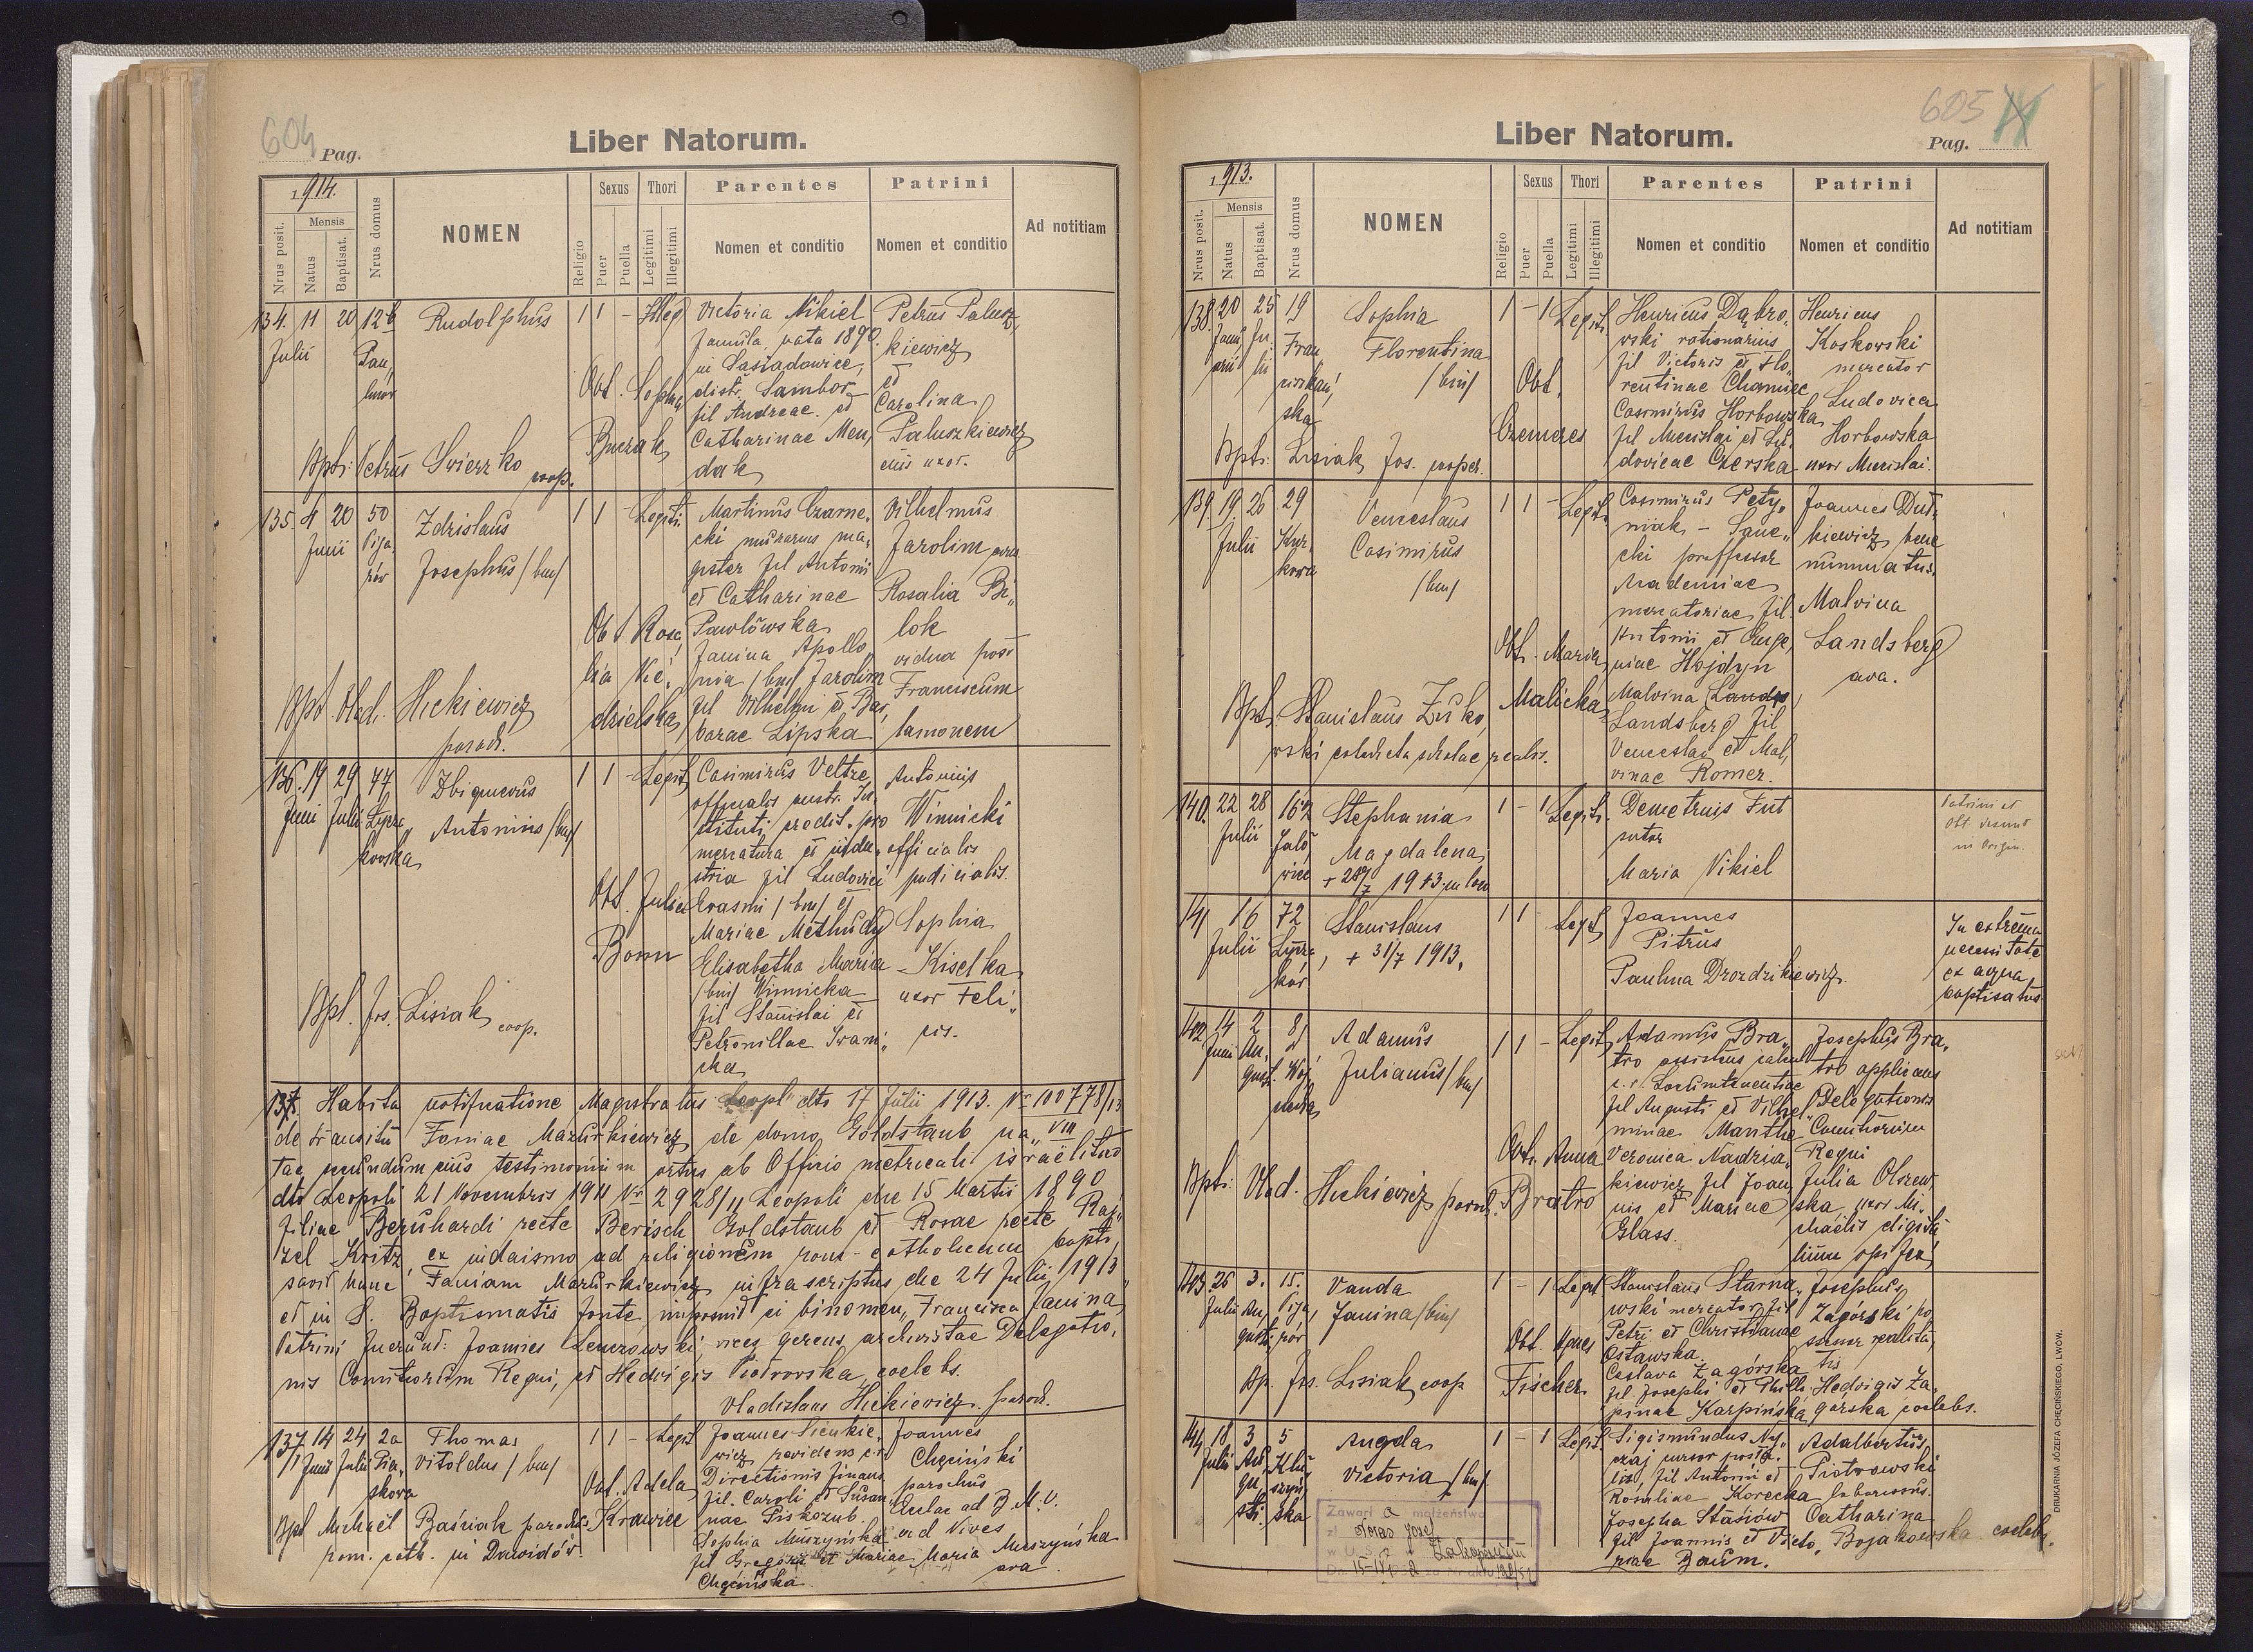 604 Pag.
Liber Natorum.
1914.
Nrus posit.
Mensis
Natus
Baptisat.
Nrus domus
NOMEN
Religio
Sexus
Puer
Puella
Thori
Legitimi
Illegitimi
Parentes
Nomen et conditio
Patrini
Nomen et conditio
Ad notitiam
134. 11 20 12b
Julii
Rudolphus
1 1 - Illeg
Obst. Sophia
Victoria Nikiel
famula, nata 1890
in Sasiadowice,
distr. Sambor
fil Andreae et
Catharinae Men,
dak
Petrus Palusz,
kiewicz
et
Carolina
Paluszkiewicz
eius uxor.
Bpti: Petrus Swierzko coop.
135. 4 20 50
Junii
Pija,
rów
Zdzislaus
Josephus /bin/
1 1 - Legiti.
Obst Rosa,
lia Nie,
dzielska
Martinus Czarne,
cki murarius ma,
gister fil Antonii
et Catharinae
Pawlówska
Janina Apollo,
nia /bin/ Jarolim
fil Vilhelmi et Bar,
barae Lipska
Vilhelmus
Jarolim
Rosalia Bi,,
lok
vidua post
Franciscum
Bpt. Vlad. Hickiewicz
paroch.
136. 19 29 47
Junii Julii Lycza,
kowska
Zbignevus
Antonius /bin/
1 1 - Legit
Obst. Julia
Bonn
Casimirus Veltze
officialis austr. In,
stituti predit. pro
mercatura et indu,
stria fil Ludovici
Erasmi /bin/ et
Mariae Methudy
Elisabetha Maria
/bin/ Winnicka
fil Stanislai et
Petronillae Iwani,,
cka
Antonius
Winnicki
officialis
judicialis.
Sophia
Kiselka
uxor Feli,,
cis.
Bpt. Jos. Lisiak coop.
137. Habita notificatione Magistratus Leopl" dto 17 Julii 1913. Nr 100778/13
VIII
de transitu Faniae Mazurkiewicz de domo Goldstaub na,,
tae secundum eius testimonium ortus ab Officio metricali israelitico
dto Leopoli 21 Novembris 1911 Nr 2928/11 Leopoli die 15 Martii 1890
filiae Bernhardi recte Berisch Goldstaub et Rosae recte Raj,,
zel Kritz, ex judaismo ad religionem rom-catholicam bapti,
savit hanc Faniam Mazurkiewicz infra scriptus die 24 Julii 1913
et in S. Baptismatis fonte imposuit ei binomen,, Francisca Janina"
Patrini fuerunt: Joannes Lenczowski, vices gerens archivistae Delegatio,
nis Comitiorum Regni, et Hedvigis Piotrowska, coelebs.
Vladislaus Hickiewicz paroch.
137/1 14 24 2a
Junii Julii Pia,
skowa
Thomas
Vitoldus /bin/
1 1 - Legit
Obst. Adela
Krawiec
Joannes Sienkie,
wicz revidens c.r
Directionis finans
fil. Caroli et Susan,
nae Piskozub.
Sophia Muszyńska
fil Gregorii et Mariae
Chęcińska.
Joannes
Chęciński
parochus
Eccles ad B. M. V.
ad Nives
Maria Muszyńska
ava
Bpt Michael Baśniak parochus
rom. cath. in Dawidów.
605
Pag.
Liber Natorum.
1913.
Nrus posit.
Mensis
Natus
Baptisat.
Nrus domus
NOMEN
Religio
Sexus
Puer
Puella
Thori
Legitimi
Illegitimi
Parentes
Nomen et conditio
Patrini
Nomen et conditio
Ad notitiam
138. 20 25 19
Janu, Ju,
arii lii
Fran,
ciszkań,
ska
Sophia
Florentina
/bin/
1 - 1 Legit.
Obst.
Czemeres
Henricus Dąbro,
wski rationarius
fil Victoris et Flo,
rentinae Chamiec
Casimirus Horbowska
fil Mieczislai et Lu,
dovicae Czerska
Henricus
Koskowski
mercator
Ludovica
Horbowska
uxor Miecislai.
Bpti: Lisiak Jos. cooper.
139. 19 26 29
Julii Kur,
kowa
Venceslaus
Casimirus
/bin/
1 1 - Legit.
Obst. Maria
Malicka
Casimirus Pety,
niak - Sane,,
cki proffessor
Academiae
mercatoriae fil.
Antonii et Euge,
niae Hajdyn
Malvina
Landsberg fil
Venceslai et Mal,
vinae Romer.
Joannes Dut,
kiewicz bene
nummatus.
Malvina
Landsberg
ava.
Bpt. Stanislaus Żuko,
wski catecheta scholae realis.
140. 22 28 162
Julii Jało,
wiec
Stephania
Magdalena
+ 28/7 1913 in loco
1 - 1 Legit.
Demetrius Fut
sutor
Maria Vikiel
Patrini et
Obst. desunt
in Origin.
141 16 72
Julii Łycza,
ków
Stanislaus
+ 31/7 1913.
1 1 - Legit
Joannes
Pitrus
Paulina Drozdzikiewicz.
In extrema
necessitate
ex aqua
baptisatus.
142 14 2 8
Junii Au,
gust. Woj,
ciecha
Adamus
Julianus /bin/
1 1 - Legit
Obst. Anna
Bratro
Adamus Bra,,
tro assistens calcul
c. r. Locumtenentiae
fil Augusti et Vilhel,,
minae Manthe
Veronica Nadzia,
kiewicz fil Joan,
nis et Mariae
Glass.
Josephus Bra,
tro applicans
Delegationis
Comitiorum
Regni
Julia Olszew
ska uxor Mi,
chaelis digita,
lium opifex
Bpti: Vlad. Hickiewicz paroch.
143. 26 3. 15.
Julii Au,
gusti
Pija,
rów
Vanda
Janina /bin/
1 - 1 Legit
Obst. Agnes
Fischer
Stanislaus Starna,,
wski mercator fil
Petri et Christianae
Ostawska.
Ceslava Zagórska
fil. Josephi et Phili,
pinae Karpińska
Josephus
Zagórski po,
ssessor realita,
tis
Hedvigis Za,
górska coelebs.
Bp. Jos. Lisiak coop
144 18 3 5
Julii Au,
gu,
sti.
Klu,
szyń,
ska
Magda
Victoria /bin/
1 - 1 Legit.
Sigismundus Ny,,
czaj cursor posta,
lis fil Antonii et
Rosaliae Korecka
Josepha Stasiów
fil Joannis et Victo,
riae Baum.
Adalbertus
Piotrowski
laborious.
Catharina
Bojakowska coelebs.
Zawarł a małżeństwo
z Józef
w U.S.C. w Zakopanem
DRUKARNIA JÓZEFA CHĘCIŃSKIEGO, LWÓW.